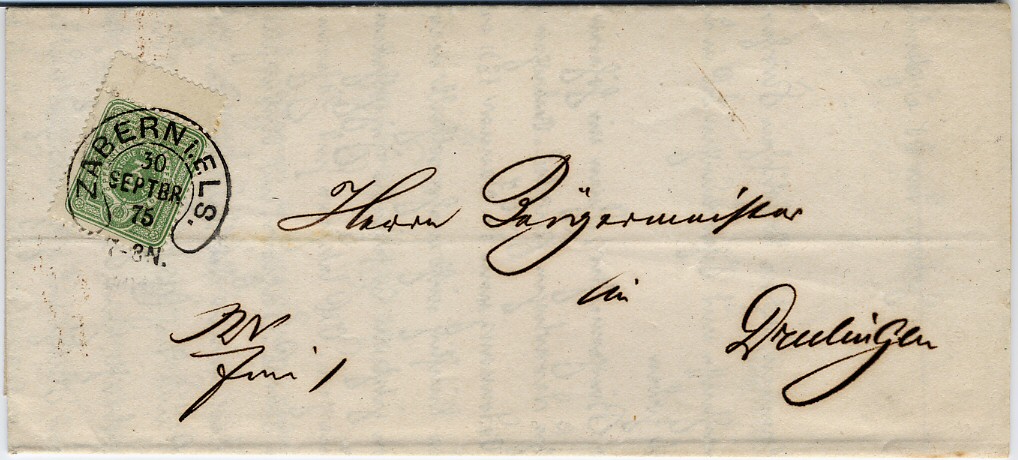 ZABERN i. ELS.
30
SEPTBR
75
7-8N.
Herrn Bürgermeister
in
Drulingen
frei